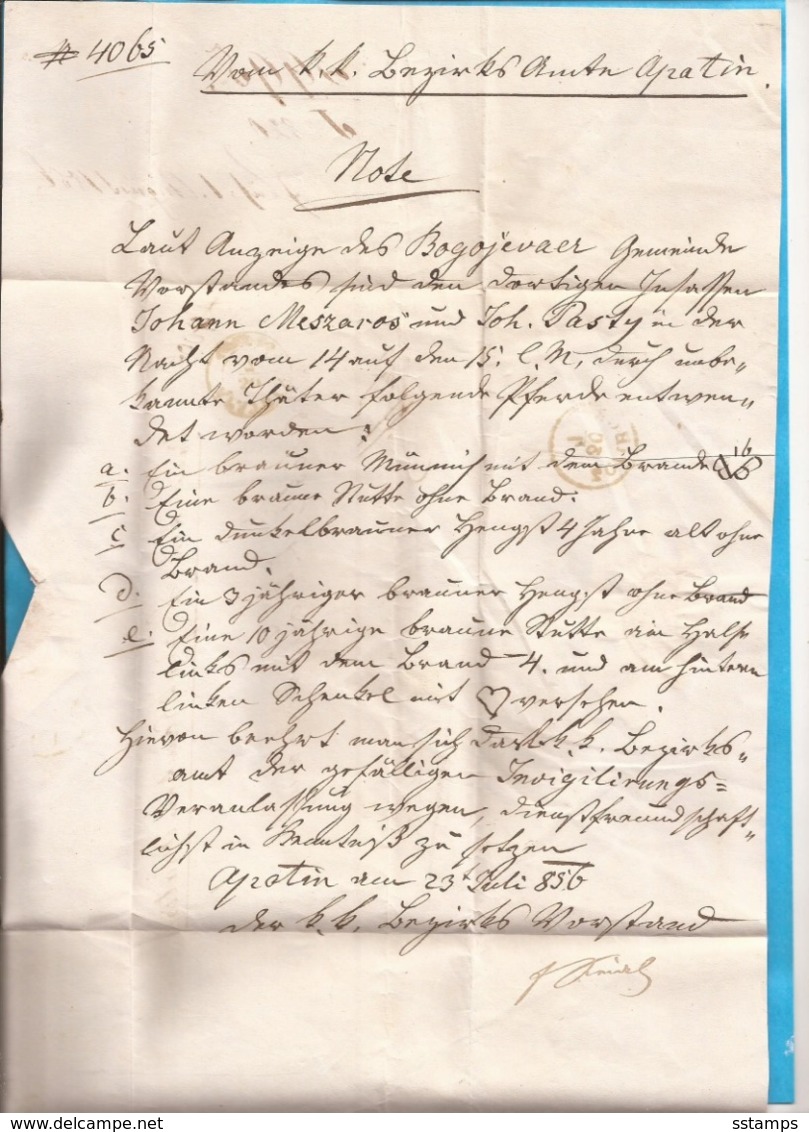 # 4065
Vom k. k. Bezirks Amte Apatin.
Note
Laut Anzeige des Bogojevaer Gemeinde
Vorstandes sind den dortigen Insassen
Johann Meszaros und Joh. Pasty in der
Nacht vom 14 auf den 15. l. M, durch unbe-
kannte Thäter folgende Pferde entwen-
det worden:
a. Ein brauner Münnich mit dem Brande 16
b. Eine braune Stutte ohne Brand.
c Ein dunkelbrauner Hengst 4 Jahre alt ohne
Brand.
d. Ein 3 jähriger brauner Hengst ohne Brand
e. Eine 10 jährige braune Stutte am Halse
links mit dem Brand 4. und am hintern
linken Schenkel mit ♡ versehen.
Hievon beehrt man sich das k. k. Bezirks-
amt der gefälligen Invigilirungs=
Veranlassung wegen, dienstfreundschaft-
lichst in Kenntniß zu setzen
Apatin am 23t Juli 856
Der k. k. Bezirks Vorstand
sstamps